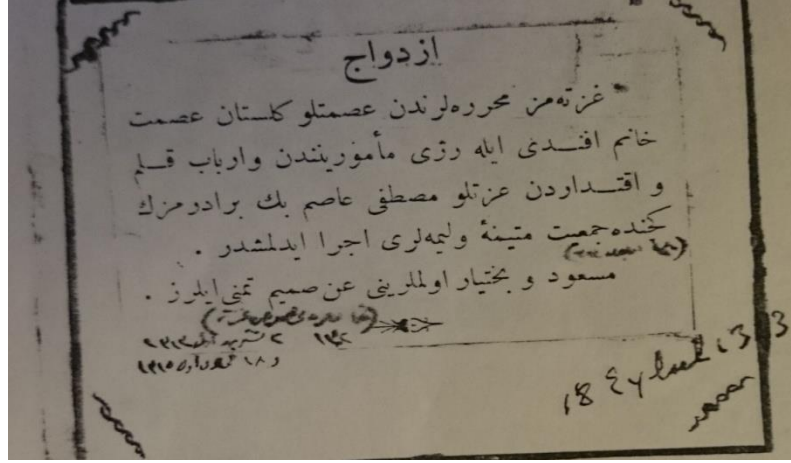 ازدواج
غزته‌مز محرره‌لرندن عصمتلو كلستان عصمت
خانم افندى ايله رژى مأمورينندن وارباب قلم
و اقتداردن عزتلو مصطفى عاصم بك برادرمزك
كچنده جمعيت متينهٔ وليمه‌لرى اجرا ايدلمشدر .
مسعود و بختيار اولملرينى عن صميم تمنى ايلرز .
18 Eylul 1313